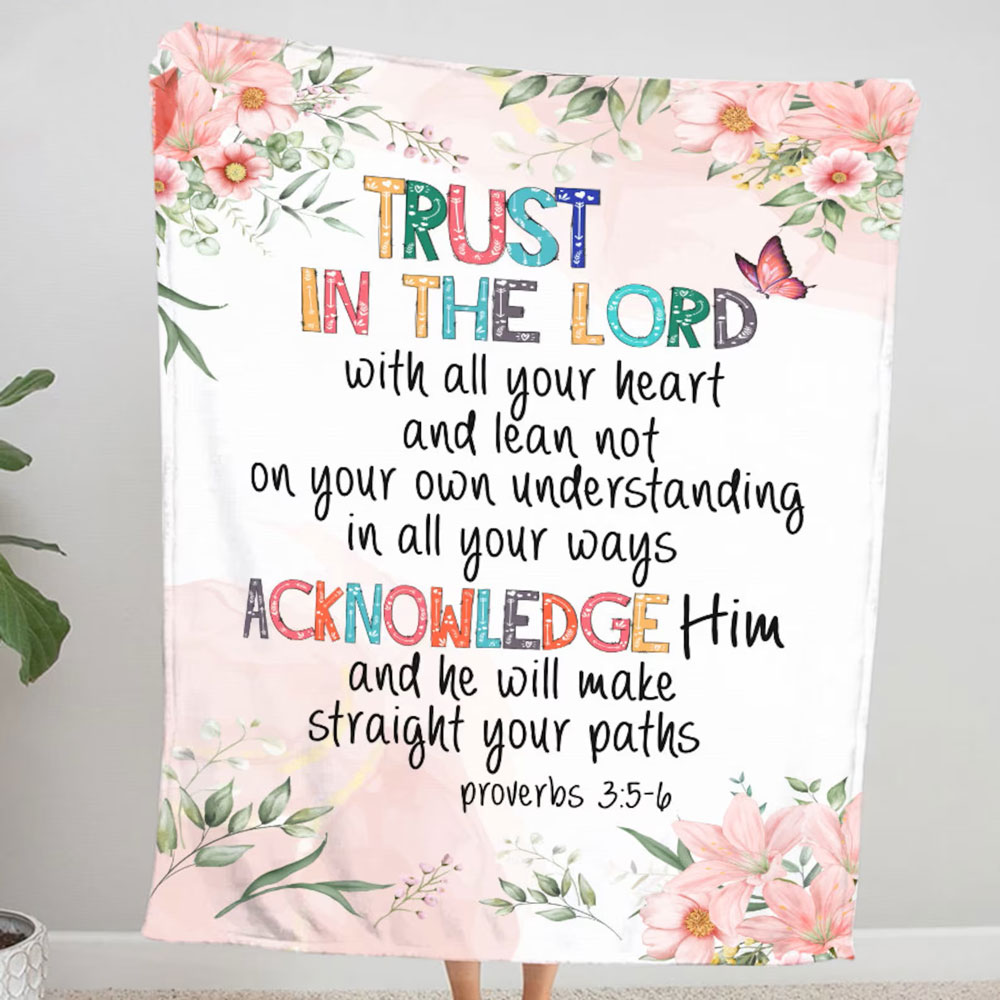 TRUST
IN THE LORD
with all your heart
and lean not
on your own understanding
in all your ways
ACKNOWLEDGE Him
and he will make
straight your paths
proverbs 3:5-6